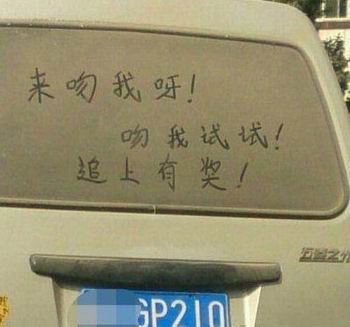 来吻我呀!
吻我试试!
追上有奖!
五菱之光
GP210